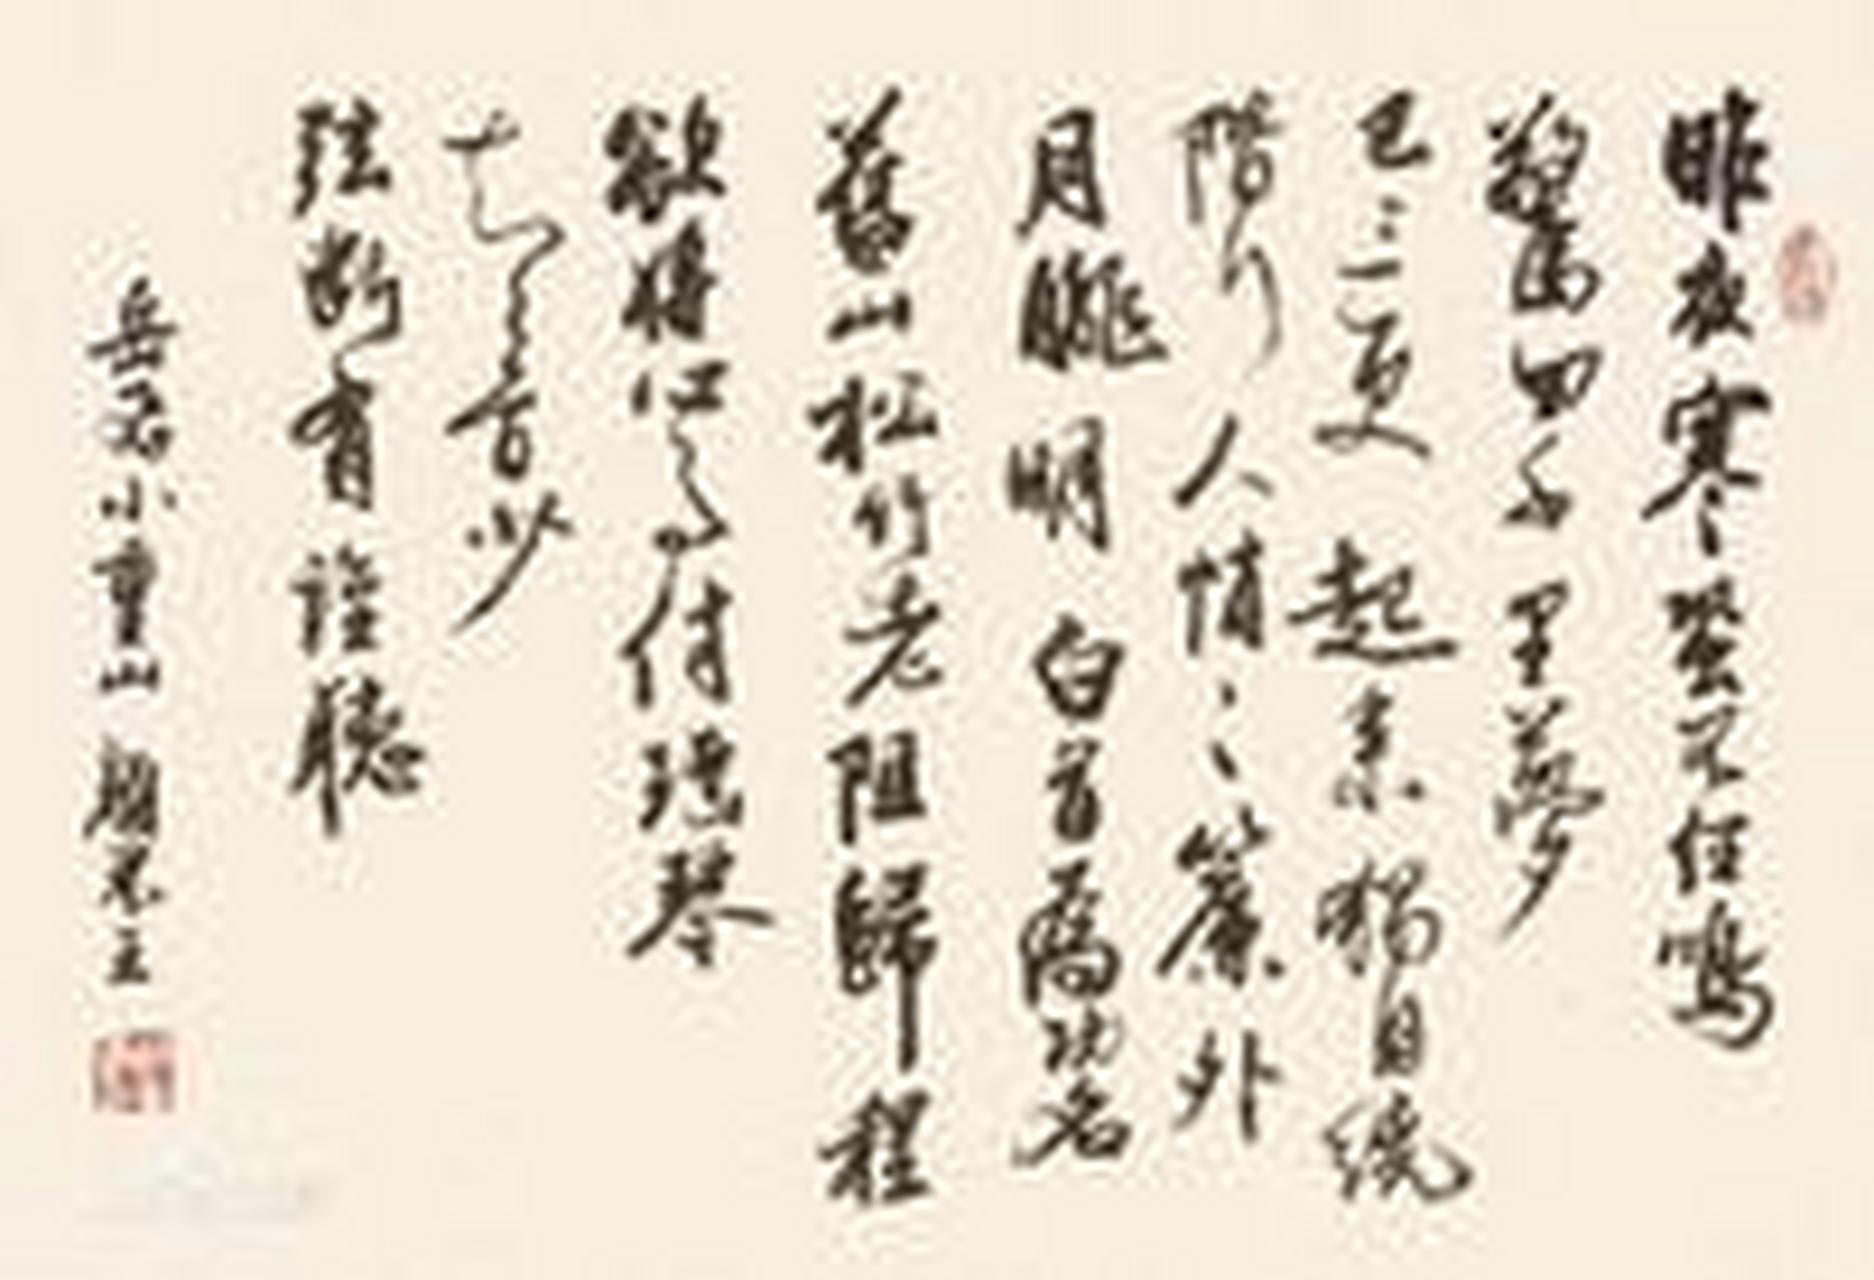 昨夜寒蛩不住鳴
驚回千里夢
已三更起來獨自繞
階行人悄悄簾外
月朧明白首為功名
舊山松竹老阻歸程
欲將心事付瑤琴
知音少
弦斷有誰聽
岳飛小重山